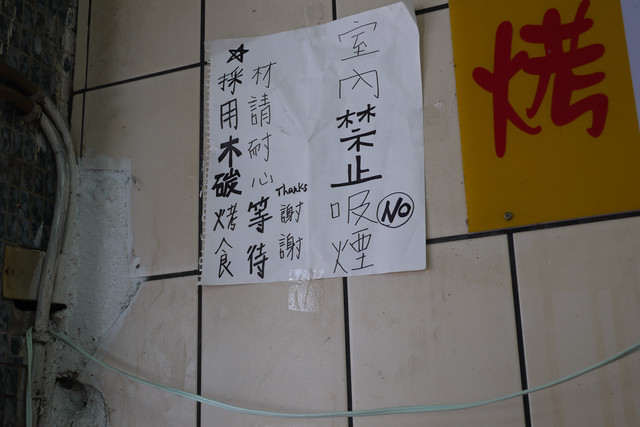 烤
室內禁止吸煙
NO
Thanks
謝謝
材請耐心等待
☆採用木碳烤食